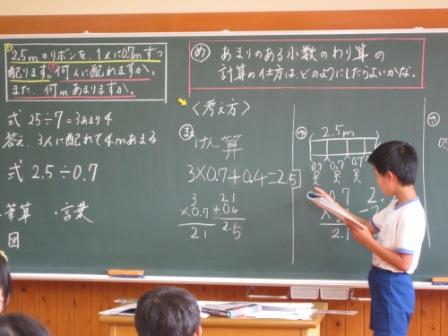 2.5mのリボンを、1人に0.7mずつ
配ります。何人に配れますか。
また、何mあまりますか。
式 25÷7=3あまり4
答え、3人に配れて4mあまる
式 2.5÷0.7
筆算 ・言葉
図
め あまりのある小数のわり算の
計算の仕方は、どのようにしたらよいかな。
〈考え方〉
けん算
3×0.7+0.4=2.5
3
×0.7
2.1
2.1
+0.4
2.5
2.5m
0.7 0.7 0.7
0.7
2.1
2.